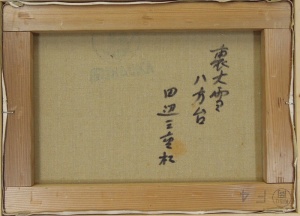 裏大雪
八方台
田辺三重松
F4